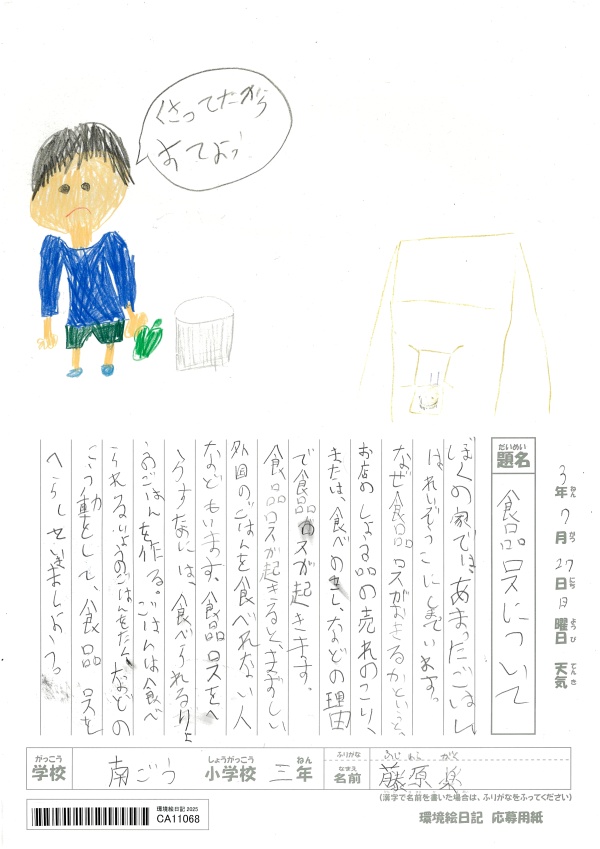 くさってたから
すてよう
だいめい
題名
食品ロスについて
3年7月27日日曜日 天気
ねん がつ にち ようび てんき
ぼくの家では、あまったごはん
はれいぞうこにしまています。
なぜ食品ロスがおきるかというと、
お店のしょう品の売れのこり、
または、食べのこし、などの理由
で食品ロスが起きます。
食品ロスが起きると、まずしい
外国のごはんを食べれない人
などもいます。食品ロスをへ
らすなには、食べられるりょ
うのごはんを作る。ごはんは食べ
られるりょうのごはんをたく、などの
こう動をして、食品ロスを
へらしていきましょう。
がっこう
学校
南ごう
しょうがっこう
小学校
三
ねん
年
ふりがな
なまえ
名前
藤原 楽
(漢字で名前を書いた場合は、ふりがなをふってください)
環境絵日記 2025
CA11068
環境絵日記 応募用紙